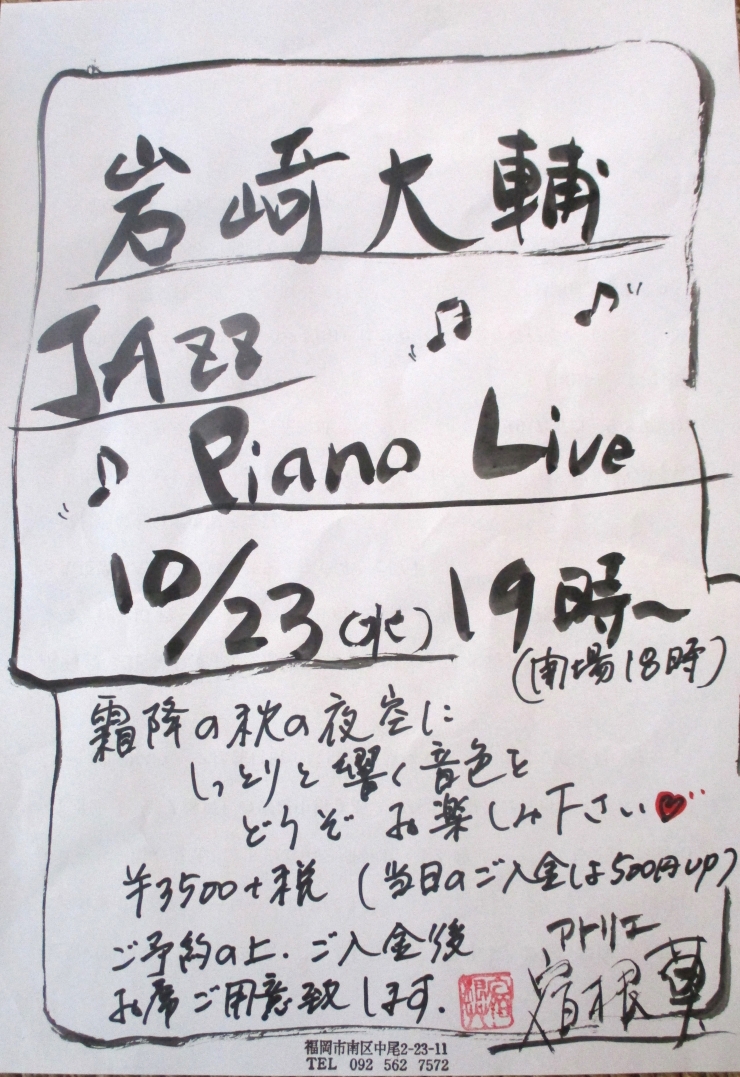 岩﨑大輔
JAZZ
Piano Live
10/23(水) 19時〜
(開場18時)
霜降の秋の夜空に
しっとりと響く音色を
どうぞお楽しみ下さい
¥3500+税 (当日のご入金は500円up)
ご予約の上、ご入金後
お席ご用意致します.
アトリエ
宿根草
福岡市南区中尾2-23-11
TEL 092 562 7572